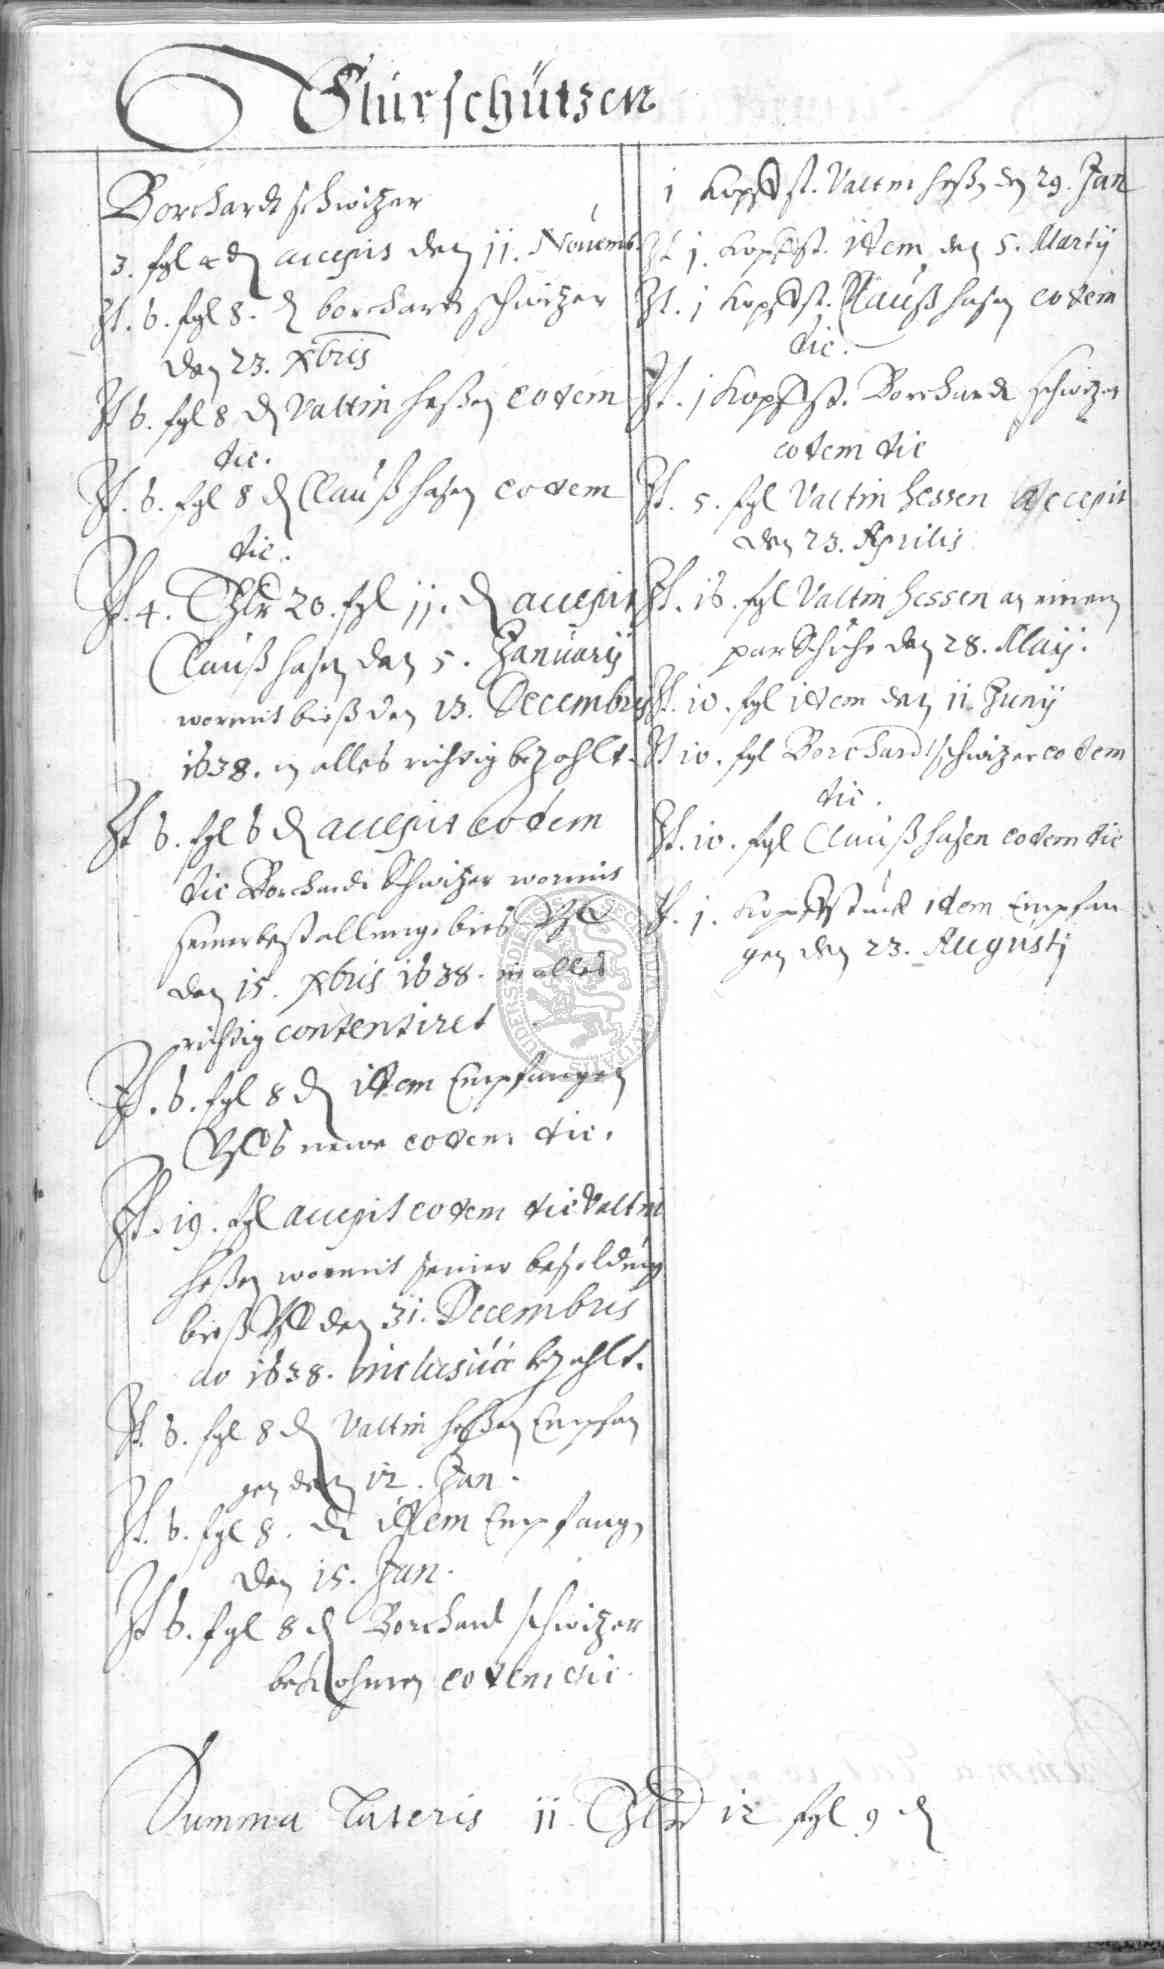 Flurschützen
Borchardt schwitzer
3. fgl 4 d accepit den 11. Novemb.
It. 6. fgl 8. d borchardt schwitzer
den 23. Xbris
It 6. fgl 8 d Valtin heßen eodem
die.
It. 6. fgl 8 d Clauß hasen eodem
die.
It. 4. Thlr 20. fgl 11. d accepit
Clauß hasen den 5. Januarij
wormit bieß den 13. Decembris
1638. in alles richtig bezahlt.
It 6. fgl 6 d accepit eodem
die Borchardt Schwitzer wormit
seiner bestallunge bies
den 15. Xbris 1638. in alles
richtig contentiret
It. 6. fgl 8 d item Empfangen
neue eodem die.
It. 19. fgl accepit eodem die Valtin
heßen wormit seiner besoldung
bieß den 31. Decembris
ao 1638. inclusive bezahlt.
It. 6. fgl 8 d Valtin heßen Empfan
gen den 12. Jan.
It. 6. fgl 8. d item Empfangen
den 15. Jan.
It 6. fgl 8 d Borchard schwitzer
bekohmen eodem die
1 Kopfst. Valtin heßen den 29. Jan
It 1. Kopfst. item den 5. Martij
It. 1 Kopfst. Clauß hasen eodem
die.
It. 1 Kopfst. Borchardt schwitzer
eodem die
It. 5. fgl Valtin hessen accepit
den 23. Aprilis
It. 16. fgl Valtin hessen an einem
par Schuhe den 28. Maij.
It. 10. fgl item den 11 Junij
It 10. fgl Borchardt schwizer eodem
die.
It. 10. fgl Clauß hasen eodem die
It. 1. Kopfstuck idem Empfan
gen den 23. Augusti
Summa Lateris 11. Thlr 12 fgl 9 d